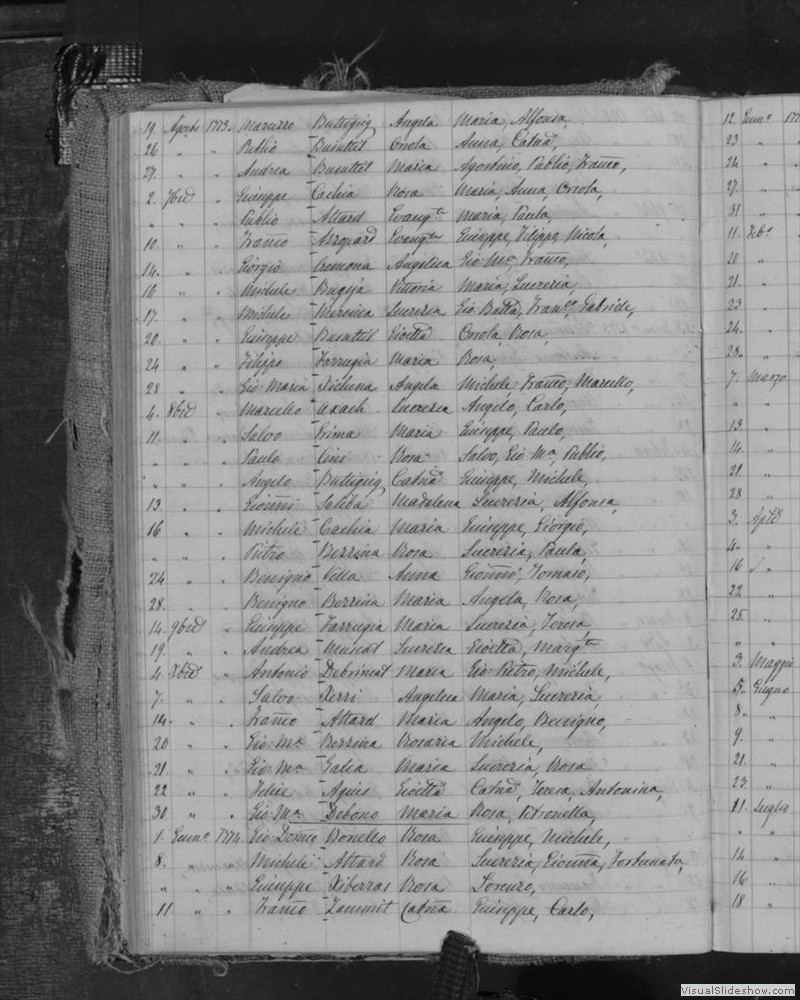 19. Agosto 1773. Maruzzo Buttigig Angela Maria, Alfonsa,
26 " " Publio Busuttil Orsola Anna, Catna,
27. " " Andrea Busuttil Maria Agostino, Publio, Franco,
2. 7bre " Giuseppe Cachia Rosa Maria, Anna, Orsola,
" " " Publio Attard Evangta Maria, Paula,
10. " " Franco Azzopard Evangta Giuseppe, Filippo, Nicola,
14. " " Giorgio Cremona Angelica Gio: Ma, Franco,
16 " " Michele Bugeja Vittoria Maria, Lucrezia,
17. " " Michele Mirsina Lucrezia Gio: Batta, Franco, Gabriele,
20. " " Giuseppe Busuttil Gioetta Orsola, Rosa,
24 " " Filippo Farrugia Maria Rosa,
28 " " Gio: Maria Xichuna Angela Michele, Franco, Marcello,
4. 8bre " Marcello Axach Lucrezia Angelo, Carlo,
11. " " Salvo Prima Maria Giuseppe, Paulo,
" " " Paulo Cini Rosa Salvo, Gio: Ma, Publio,
" " " Angelo Buttigig Catna Giuseppe, Michele,
13. " " Gioanni Saliba Madalena Lucrezia, Alfonsa,
16 " " Michele Cachia Maria Giuseppe, Giorgio,
" " " Pietro Bezzina Rosa Lucrezia, Paula,
24 " " Benigno Vella Anna Gioanni, Tomaso,
28. " " Benigno Bezzina Maria Angela, Rosa,
14. 9bre " Giuseppe Farrugia Maria Lucrezia, Teresa,
19. " " Andrea Muscat Lucrezia Gioetta, Margta
4. Xbre " Antonio Debrincat Maria Gio: Pietro, Michele,
7. " " Salvo Xerri Angelica Maria, Lucrezia,
14. " " Franco Attard Maria Angelo, Benigno,
20 " " Gio: Ma Bezzina Rosaria Michele,
21. " " Gio: Ma Galea Maria Lucrezia, Rosa
22 " " Felice Agius Gioetta Catna, Teresa, Antonina,
30 " " Gio: Ma Debono Maria Rosa, Petronella,
1. Genno. 1774. Gio: Domco Bonello Rosa Giuseppe, Michele,
8. " " Michele Attard Rosa Lucrezia, Gioanna, Fortunata,
" " " Giuseppe Xiberras Rosa Lorenzo,
11. " " Franco Zammit Catna Giuseppe, Carlo,
12. Genno. 177
23 "
24 "
27. "
31 "
11. Feb.
20 "
21. "
23 "
24. "
28. "
7. Marzo
" "
13. "
14. "
21. "
28 "
3. Aple
4. "
16 "
22 "
25. "
" "
3. Maggio
5. Giugno
8. "
9. "
21. "
23. "
11. Luglio
" "
14 "
16 "
18 "
VisualSlideshow.com